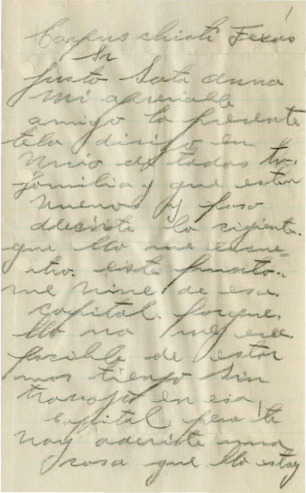 1
Corpus christi Texas
Sr
Justo Sata anna
Mi apreciable
amigo la presente
tela dirijo en
unio de todas tu
familia y que esten
buenos y paso
adecirte lo sigiente.
que llo me encue
tro. este punto..
me vine de esa
capital. porque
llo no me era
posible de estar
mas tiempo sin
trabajo en esa
capital pero te
boy adecirte una
cosa que llo estoy